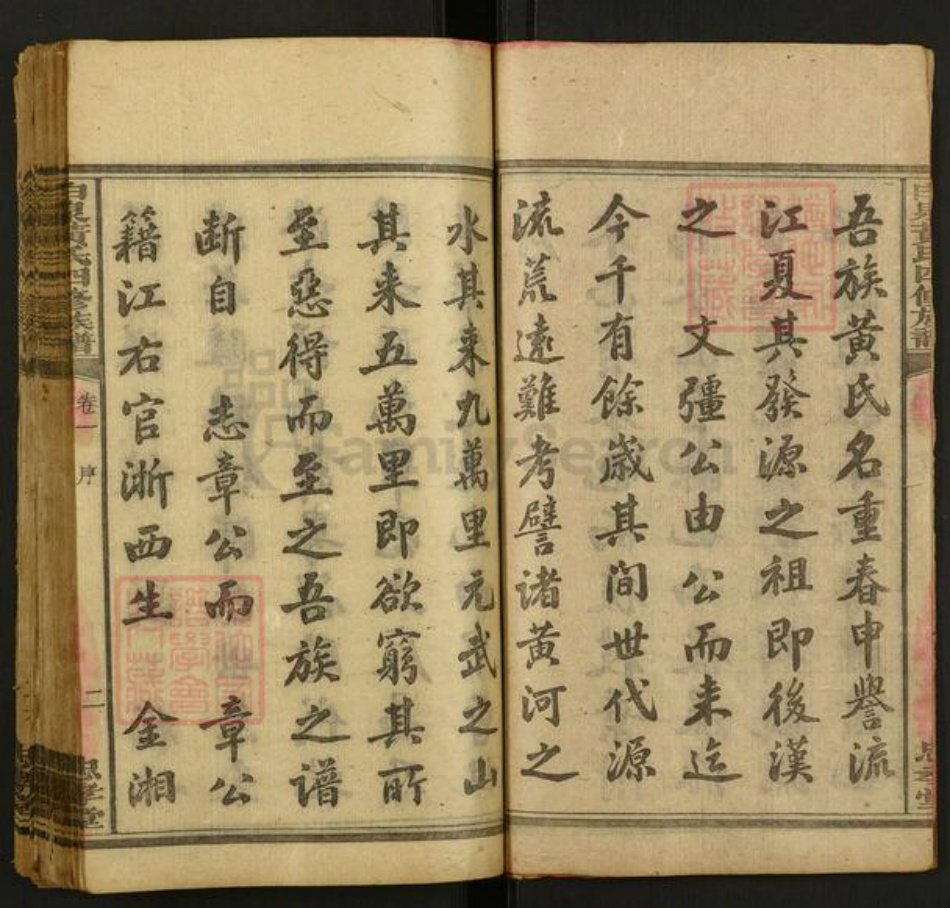 吾族黄氏名重春申譽流
江夏其發源之祖即後漢
之文彊公由公而来迄
今千有餘歳其間世代源
流荒遠難考譬諸黄河之
水其来九萬里元武之山
其来五萬里即欲窮其所
至惡得而至之吾族之譜
断自志章公而章公
籍江右官浙西生金湘
黄氏四修族譜
卷一
序
二
思孝堂
FamilySearch